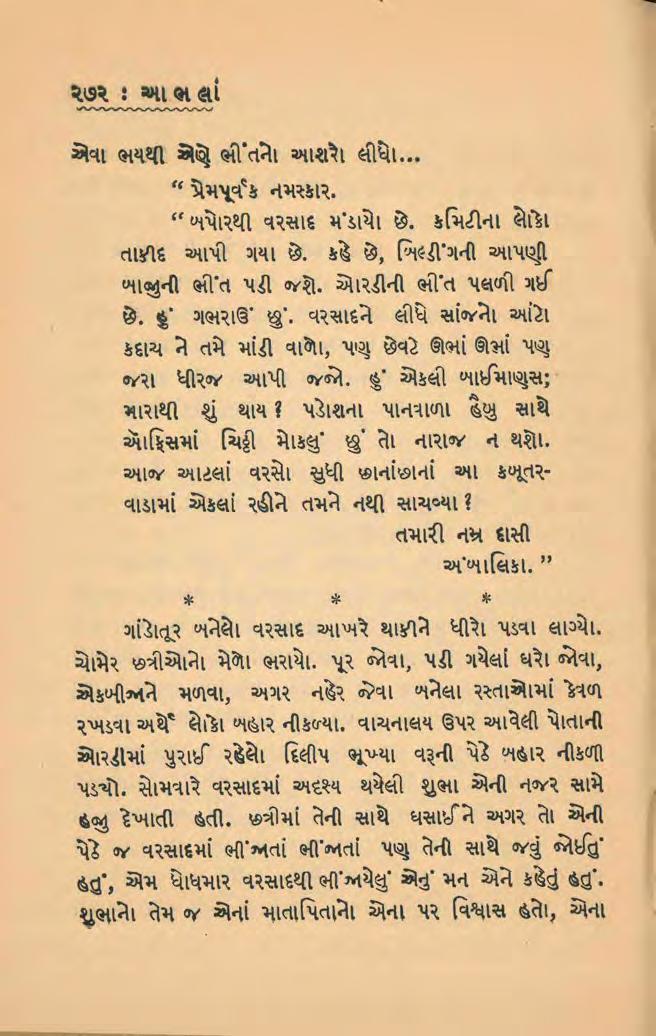 ૨૭૨ : આભલાં
એવા ભયથી એણે ભીંતનો આશરો લીધો...
“ પ્રેમપૂર્વક નમસ્કાર.
“ બપોરથી વરસાદ મંડાયો છે. કમિટીના લોકો
તાકીદ આપી ગયા છે. કહે છે, બિલ્ડીંગની આપણી
બાજુની ભીંત પડી જશે. ઓરડીની ભીંત પલળી ગઈ
છે. હું ગભરાઉં છું. વરસાદને લીધે સાંજનો આંટો
કદાચ ને તમે માંડી વાળો, પણ છેવટે ઊભાં ઊભાં પણ
જરા ધીરજ આપી જજો. હું એકલી બાઈમાણુસ;
મારાથી શું થાય ? પડોશના પાનવાળા હૈબુ સાથે
ઑફિસમાં ચિઠ્ઠી મોકલું છું તો નારાજ ન થશો.
આજ આટલાં વરસો સુધી છાનાંછાનાં આ કબૂતર-
વાડામાં એકલાં રહીને તમને નથી સાચવ્યા ?
તમારી નમ્ર દાસી
અંબાલિકા. ”
* * *
ગાંડોતૂર બનેલો વરસાદ આખરે થાકીને ધીરો પડવા લાગ્યો.
ચોમેર છત્રીઓનો મેળો ભરાયો. પૂર જોવા, પડી ગયેલાં ઘરો જોવા,
એકબીજાને મળવા, અગર નહેર જેવા બનેલા રસ્તાઓમાં કેવળ
રખડવા અર્થે લોકો બહાર નીકળ્યા. વાચનાલય ઉપર આવેલી પોતાની
ઓરડીમાં પુરાઈ રહેલો દિલીપ ભૂખ્યા વરુની પેઠે બહાર નીકળી
પડ્યો. સોમવારે વરસાદમાં અદૃશ્ય થયેલી શુભા એની નજર સામે
હજુ દેખાતી હતી. છત્રીમાં તેની સાથે ઘસાઈને અગર તો એની
પેઠે જ વરસાદમાં ભીંજાતાં ભીંજાતાં પણ તેની સાથે જવું જોઈતું
હતું, એમ ધોધમાર વરસાદથી ભીંજાયેલું એનું મન એને કહેતું હતું.
શુભાનો તેમ જ એનાં માતાપિતાનો એના પર વિશ્વાસ હતો, એના